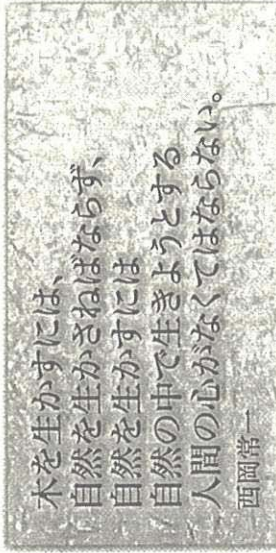 木を生かすには、
自然を生かさねばならず、
自然を生かすには
自然の中で生きようとする
人間の心がなくてはならない。
西岡常一